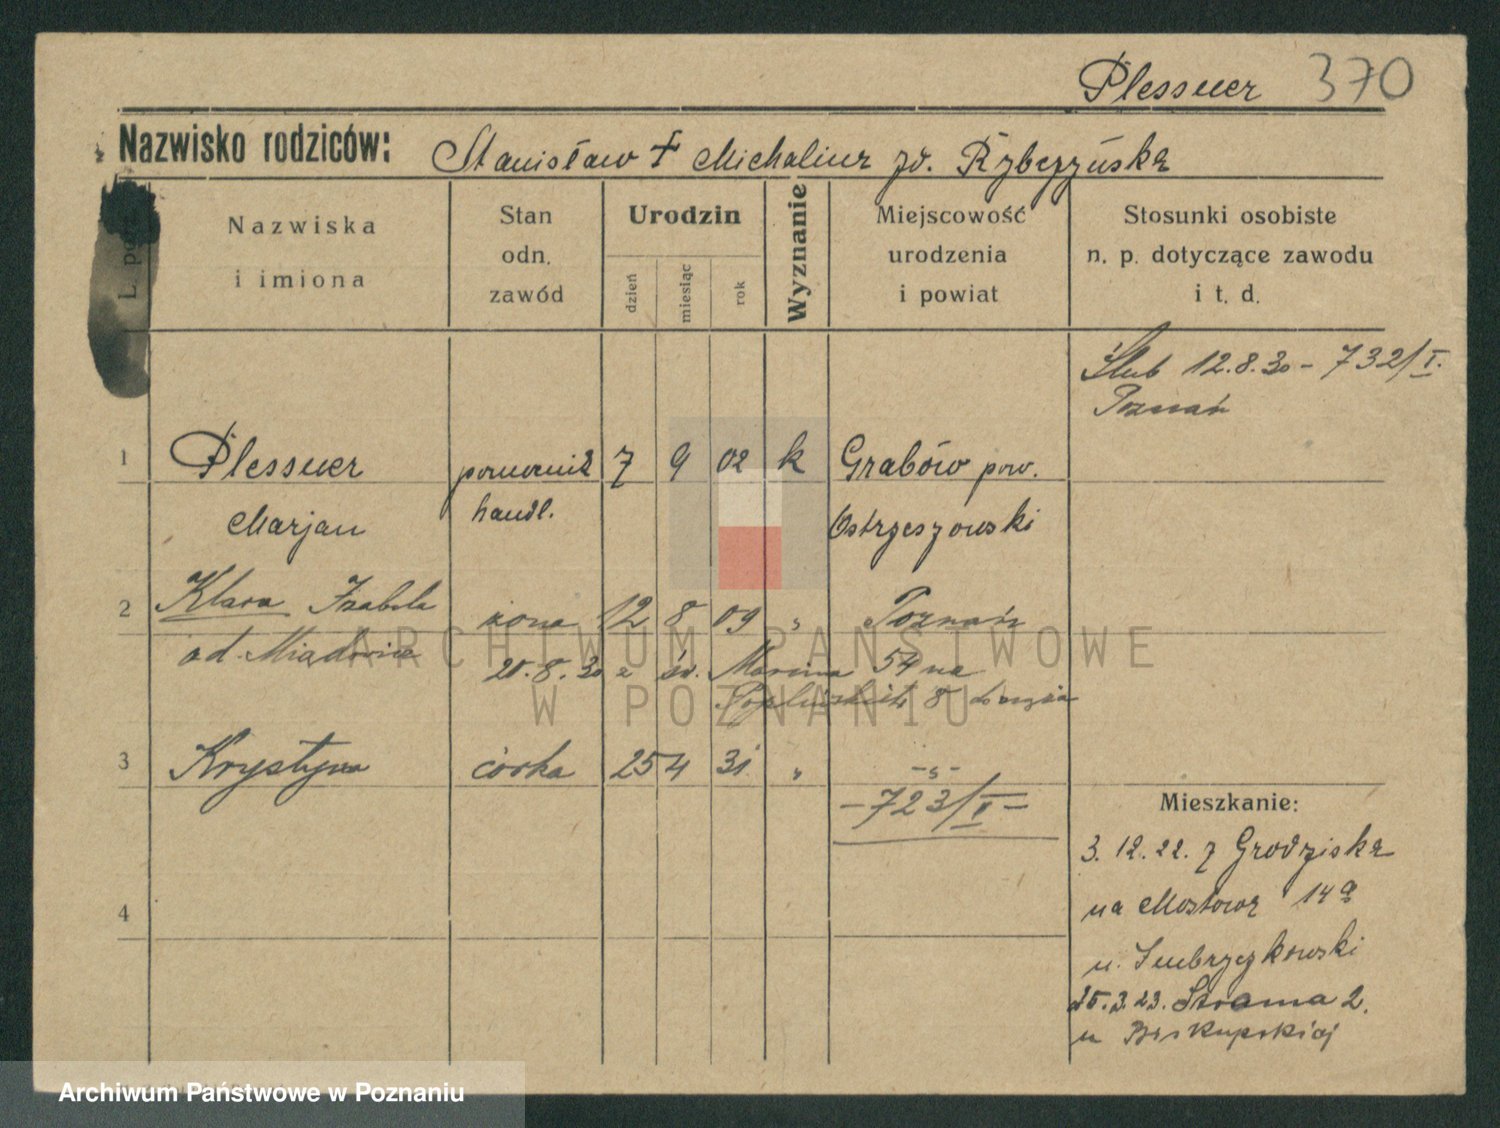 Plessner 370
Nazwisko rodziców: Stanisław + Michalina zd. Rybczyńska
L. porz.
Nazwiska
i imiona
Stan
odn.
zawód
Urodzin
dzień
miesiąc
rok
Wyznanie
Miejscowość
urodzenia
i powiat
Stosunki osobiste
n. p. dotyczące zawodu
i t. d.
Ślub 12.8.30 - 732/I.
Poznań
1 Plessner pomocnik 7 9 02 k Grabów pow.
Marjan handl. Ostrzeszowski
2 Klara Izabela żona 12 8 09 " Poznań
od 20.8.30 z św. Marcina 54 na
8
3 Krystyna córka 25 4 31 " -"-
-723/II-
Mieszkanie:
3. 12. 22. z Grodziska
na Mostową 14a
u.
4
25.3.23. Strama 2.
u Biskupskiej
ARCHIWUM PAŃSTWOWE
W POZNANIU
Archiwum Państwowe w Poznaniu